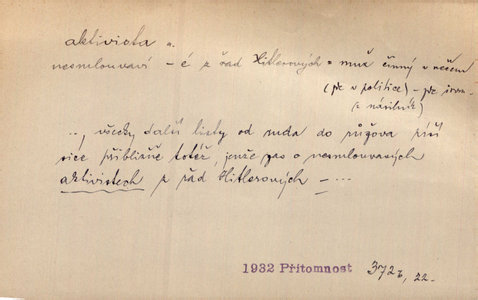 aktivista m.
nesmlouvaví – é z řad Hitlerových = muž činný v něčem
(zvl. v politice) –
(i násilník)
..., všecky další listy od ruda do růžova píší
sice přibližně totéž, jenže zas o nesmlouvavých
aktivistech z řad Hitlerových – ...
1932 Přítomnost 372, 22.